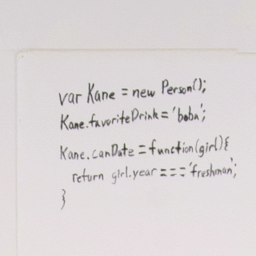 var Kane = new Person();
Kane.favoriteDrink = 'boba';
Kane.canDate = function(girl){
return girl.year === 'freshman';
}